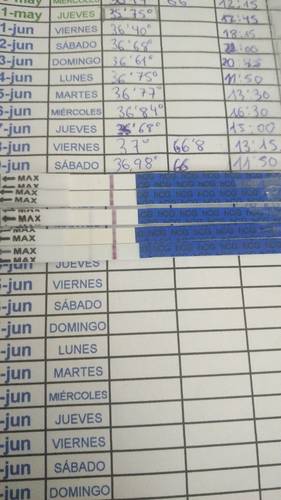 -may MIÉRCOLES 66 12:15
1-may JUEVES 35'75º 17:45
-jun VIERNES 36'40º 18:15
2-jun SÁBADO 36'68º :00
3-jun DOMINGO 36'61º 20:45
4-jun LUNES 36'75º 11'50
5-jun MARTES 36'77º 13'30
6-jun MIÉRCOLES 36'84º 16:30
7-jun JUEVES '68º 15:00
8-jun VIERNES 37º 66'8 13:15
9-jun SÁBADO 36,98º 66 11'50
MAX HCG HCG HCG HCG HCG
MAX HCG HCG HCG HCG HCG
MAX
MAX HCG HCG HCG HCG HCG
MAX HCG HCG HCG HCG HCG
MAX
MAX HCG HCG HCG HCG HCG
-jun JUEVES
-jun VIERNES
-jun SÁBADO
-jun DOMINGO
-jun LUNES
-jun MARTES
-jun MIÉRCOLES
-jun JUEVES
-jun VIERNES
-jun SÁBADO
-jun DOMINGO